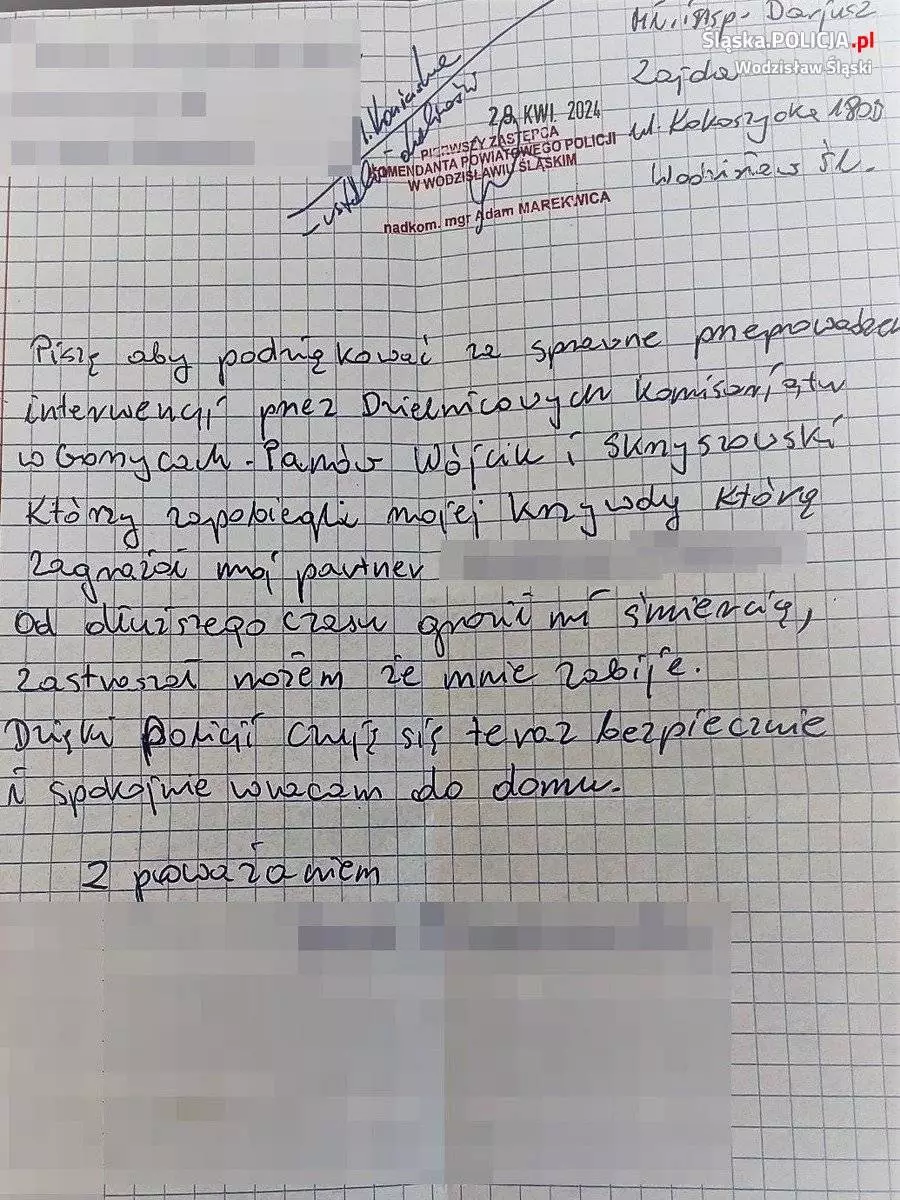 Mł. insp. Dariusz
Śląska.POLICJA.pl
Wodzisław Śląski
Zajda
ul. Kokoszycka 180B
Wodzisław Śl.
KWI. 2024
PIERWSZY ZASTĘPCA
KOMENDANTA POWIATOWEGO POLICJI
W WODZISŁAWIU ŚLĄSKIM
nadkom. mgr Adam MAREKWICA
Piszę aby podziękować za sprawne przeprowadzen
interwencji przez Dzielnicowych Komisariatu
w Gorzycach. Panów Wójcik i Skrzyszowski
Którzy zapobiegli mojej krzywdy którą
zagrażał mój partner
Od dłuższego czasu groził mi śmiercią,
zastraszał nożem że mnie zabije.
Dzięki policji czuję się teraz bezpiecznie
i spokojnie wracam do domu.
Z poważaniem